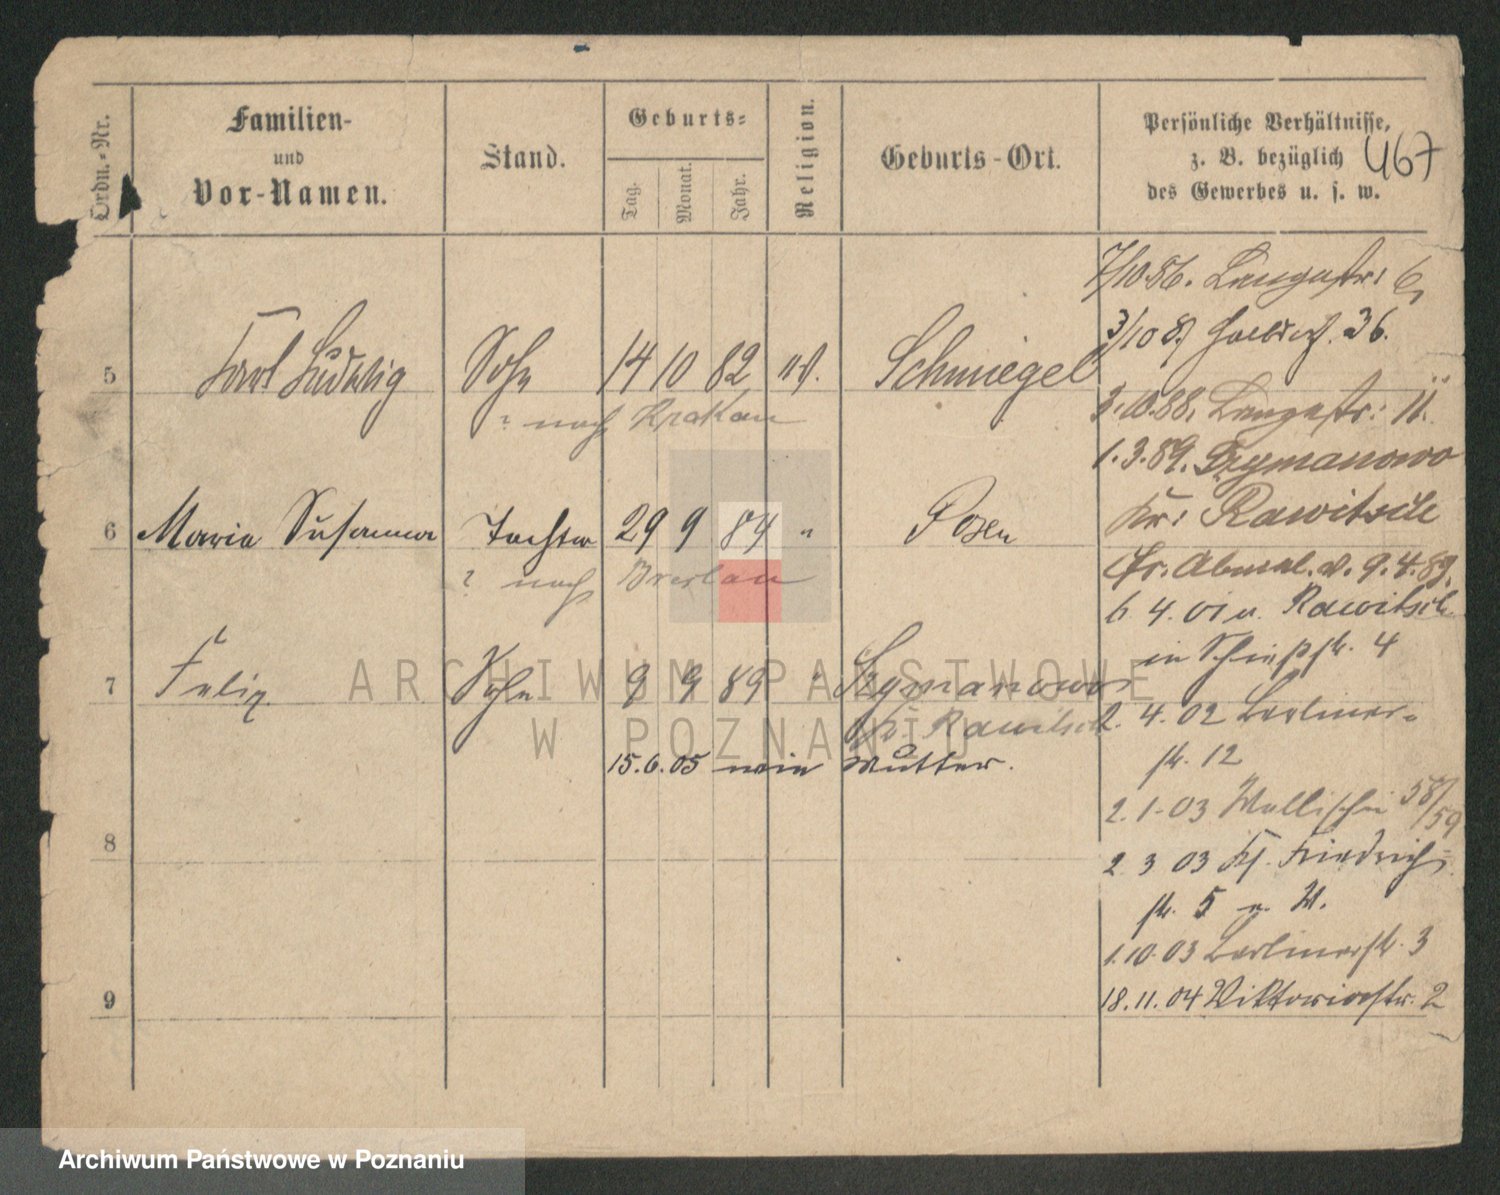 Ordn.-Nr.
Familien-
und
Vor-Namen.
Stand.
Geburts-
Tag.
Monat.
Jahr.
Religion.
Geburts-Ort.
Persönliche Verhältnisse,
z. B. bezüglich
des Gewerbes u. s. w.
467
7/10.86. Langestr. 6
3/10 87 36.
5 Karl Ludwig Sohn 14 10 82 Schmiegel
? nach Krakau
3.10.88. Langestr. 11.
1.3.89. Szymanowo
Kr. Rawitsch
6 Maria Susanna Tochter 29 9 84 " Posen
? nach Breslau
fr. Abmel. v. 9.4.89.
6. 4. 01 v. Rawitsch
in Schießstr. 4
7 Felix Sohn 9 9 89 " Szymanowo
Kr. Rawitsch
15.6.05 wie Mutter.
2. 4. 02 Berliner-
str. 12
2. 1. 03 Wallischei 58/59
8
2 3 03 Kf. Friedrich-
str. 5 u. W.
1.10.03 Berlinerstr. 3
9
18.11.04 Viktoriastr. 2
ARCHIWUM PAŃSTWOWE
W POZNANIU
Archiwum Państwowe w Poznaniu